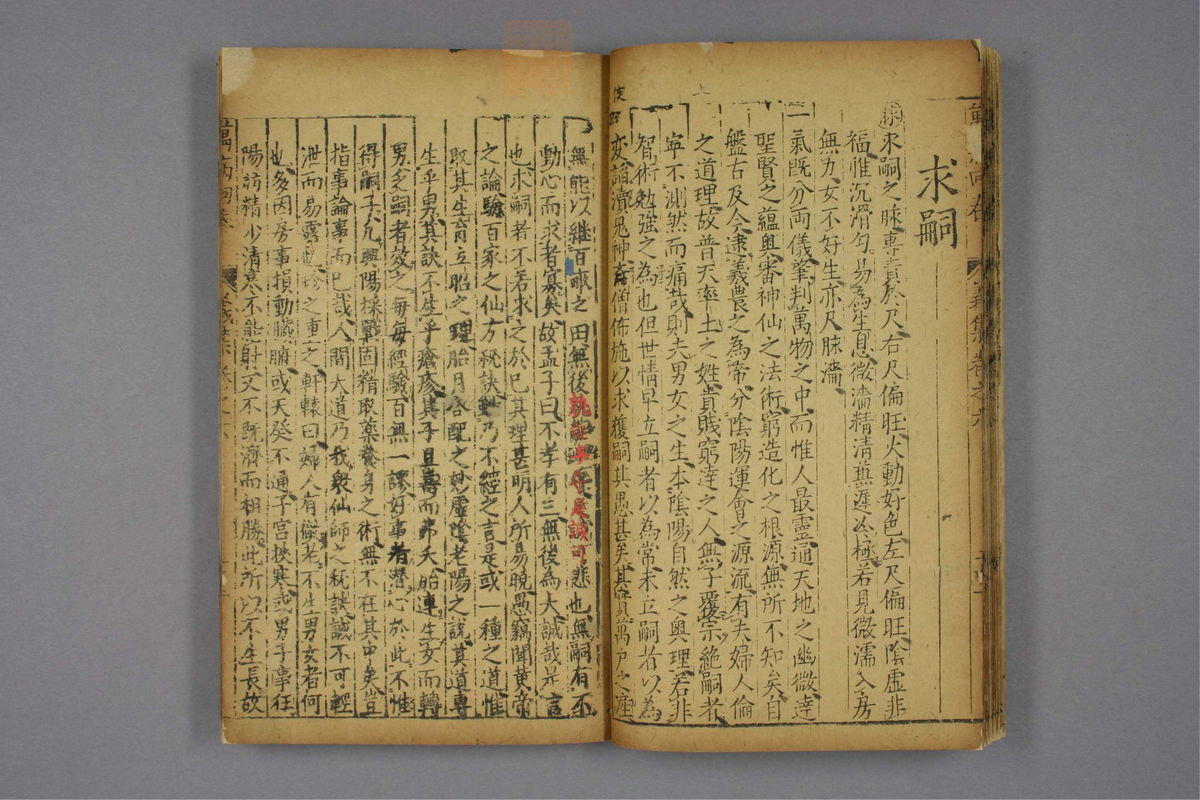 求嗣
脉求嗣之脉專責於尺右尺偏旺火動好色左尺偏旺陰虛非
福惟沉滑勻易為生息微濇精清兼遲冷極若見微濡入房
無力女不好生亦尺脉濇
二氣既分兩儀肇判萬物之中而惟人最靈通天地之幽微達
聖賢之蘊奧審神仙之法術窮造化之根源無所不知矣自
盤古及今逮羲農之為帝分陰陽運會之源流有夫婦人倫
之道理故普天率土之姓貴賤窮達之人無子覆宗絕嗣者
寧不測然而痛哉則夫男女之生本陰陽自然之與理若非
智術勉強之為也但世情早立嗣者以為常未立嗣者以為
変謟瀆鬼神齋僧佈施以求獲嗣其愚甚矣其貲萬戶之產
無能以繼百畝之田無後誠可悲也無嗣有不
動心而求者寡矣故孟子曰不孝有三無後為大誠哉是言
也求嗣者不若求之於己其理甚明人所易曉愚竊聞黄帝
之論驗百家之仙方秘訣乃不經之言是或一種之道惟
取其生育立昭之理胎月合配之妙靈陰老陽之說其道專
生乎男其訣不生乎瘡疹其子且壽而弗夭胎連生女而轉
男乏嗣者效之每每經驗百無一謬好事者潛心於此不惟
得嗣子凡興陽採戰固精取藥養身之術無不在其中矣豈
指事論事而已哉人間大道乃我衆仙師之秘訣誠不可輕
泄而易露珍之重之軒轅曰婦人有儺老不生男女者何
也多因房事損動臟腑或天癸不通子宮挾寒或男子學狂
陽訪精少清寒不能射文不既濟而相勝此所以不生長故